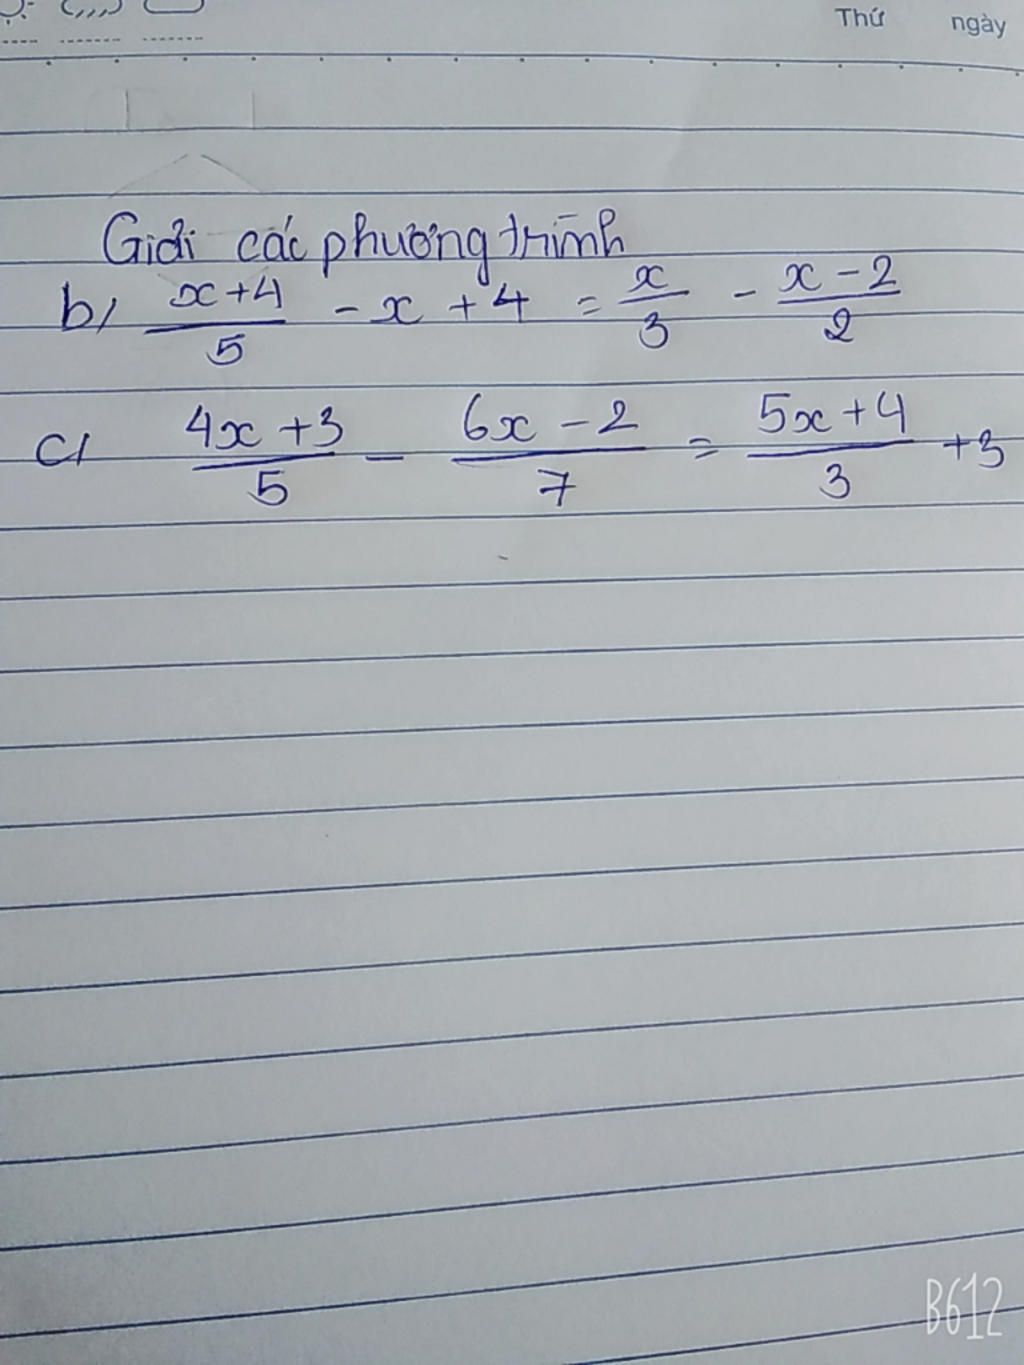 Thứ ngày
Giải các phương trình
b/ \frac{x+4}{5} - x + 4 = \frac{x}{3} - \frac{x-2}{2}
c/ \frac{4x+3}{5} - \frac{6x-2}{7} = \frac{5x+4}{3} + 3
B612